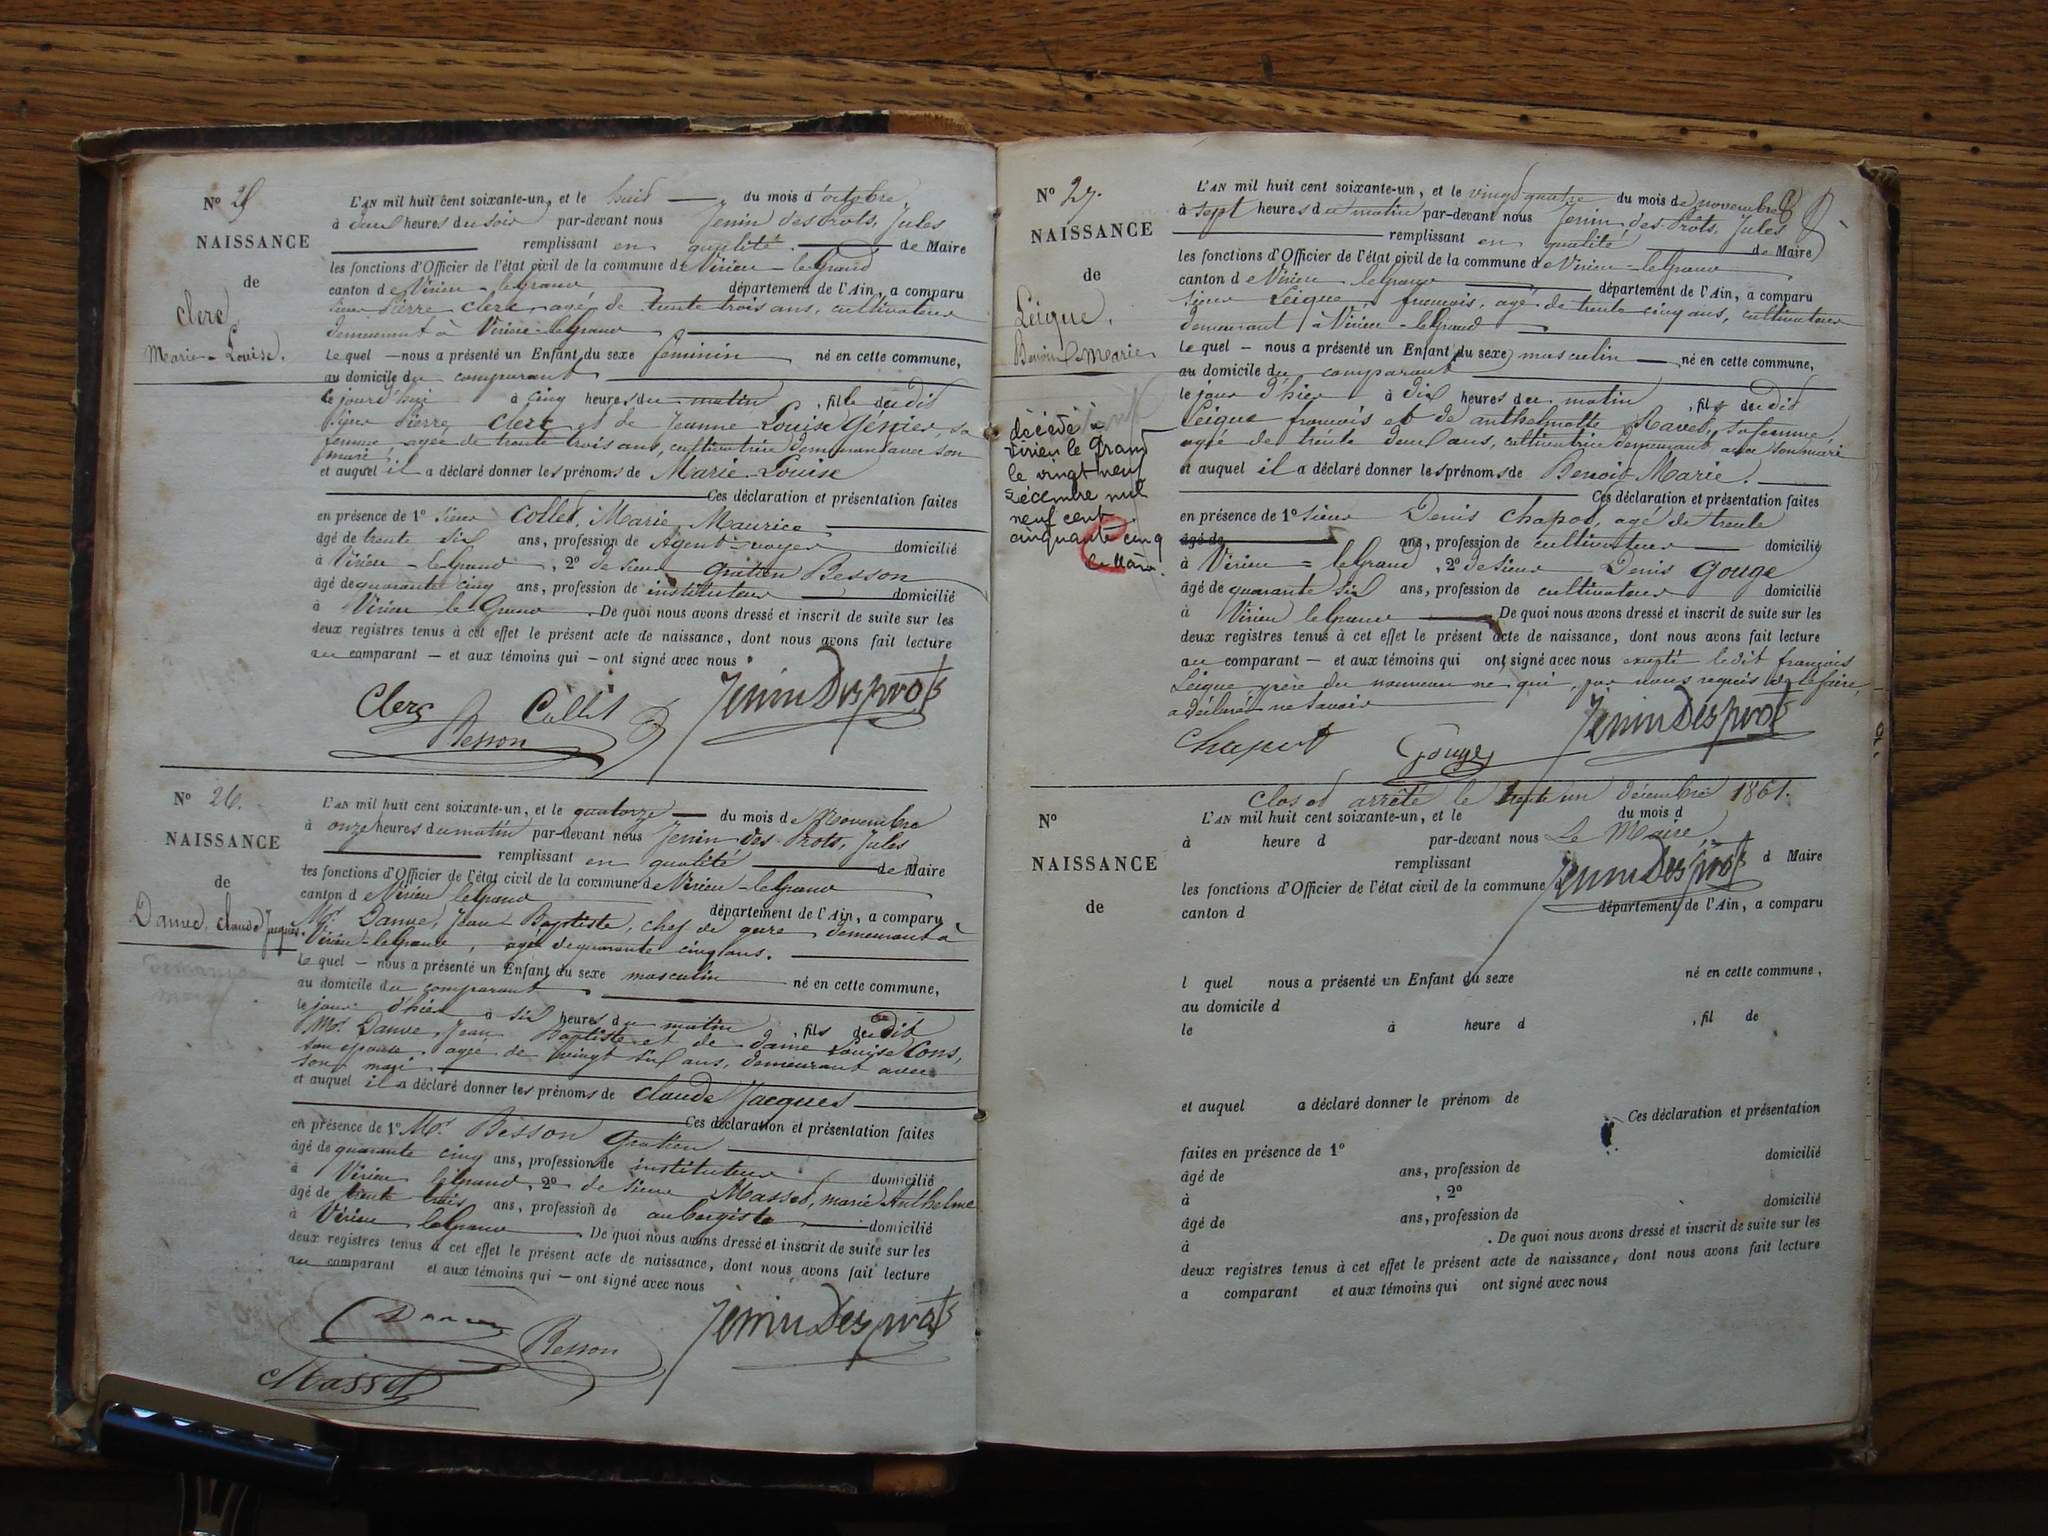 N° 25
NAISSANCE
de
Clerc
Marie-Louise.
L'AN mil huit cent soixante-un, et le huit du mois d'octobre
à deux heures du soir par-devant nous Jenin des Prots, Jules
remplissant en qualité de Maire
les fonctions d'Officier de l'état civil de la commune de Virieu-le Grand
canton de Virieu le grand département de l'Ain, a comparu
sieur Pierre Clerc agé de trente trois ans, cultivateur
demeurant à Virieu-le Grand
le quel nous a présenté un Enfant du sexe feminin né en cette commune,
au domicile du comparant
le jourd'hui à cinq heures du matin, fille du dit
sieur Pierre Clerc et de Jeanne Louise Génier, sa
femme agée de trente trois ans, cultivatrice demeurant avec son
mari
et auquel il a déclaré donner les prénoms de Marie Louise
Ces déclaration et présentation faites
en présence de 1° sieur Collet, Marie, Maurice
âgé de trente six ans, profession de Agent-voyer domicilié
à Virieu-le Grand, 2° de sieur Gratien Besson
âgé de quarante cinq ans, profession de instituteur domicilié
à Virieu le Grand. De quoi nous avons dressé et inscrit de suite sur les
deux registres tenus à cet effet le présent acte de naissance, dont nous avons fait lecture
au comparant — et aux témoins qui — ont signé avec nous.
Clerc Collet Jenin Desprots
Besson
N° 26.
NAISSANCE
de
Danve, Claude Jacques.
L'AN mil huit cent soixante-un, et le quatorze du mois de Novembre
à onze heures du matin par-devant nous Jenin des Prots, Jules
remplissant en qualité de Maire
les fonctions d'Officier de l'état civil de la commune de Virieu-le Grand
canton de Virieu le Grand département de l'Ain, a comparu
Mr Danve, Jean Baptiste, chef de gare demeurant à
Virieu-le Grand, agé de quarante cinq ans.
le quel — nous a présenté un Enfant du sexe masculin né en cette commune,
au domicile du comparant
le jour d'hier à six heures du matin, fils du dit
Mr Danve, Jean Baptiste et de dame Louise Cons,
son epouse, agée de vingt six ans, demeurant avec
son mari
et auquel il a déclaré donner les prénoms de Claude Jacques
Ces déclaration et présentation faites
en présence de 1° Mr Besson Gratien
âgé de quarante cinq ans, profession de instituteur domicilié
à Virieu le Grand, 2° de sieur Masset, Marie Anthelme
âgé de trente trois ans, profession de aubergiste domicilié
à Virieu le Grand. De quoi nous avons dressé et inscrit de suite sur les
deux registres tenus à cet effet le présent acte de naissance, dont nous avons fait lecture
au comparant et aux témoins qui — ont signé avec nous
Danve Besson Jenin Desprots
Masset
N° 27.
NAISSANCE
de
Leique,
Benoit Marie
décédé à
Virieu le Grand
le vingt neuf
décembre mil
neuf cent
cinquante cinq
L'AN mil huit cent soixante-un, et le vingt quatre du mois de novembre
à sept heures du matin par-devant nous Jenin des Prôts, Jules
remplissant en qualité de Maire
les fonctions d'Officier de l'état civil de la commune de Virieu-le Grand
canton de Virieu le Grand département de l'Ain, a comparu
sieur Leique françois, agé de trente cinq ans, cultivateur
demeurant à Virieu-le Grand
le quel — nous a présenté un Enfant du sexe masculin né en cette commune,
au domicile du comparant
le jour d'hier à dix heures du matin, fils du dit
Leique françois et de anthelmette Ravet, sa femme
agée de trente deux ans, cultivatrice demeurant avec son mari
et auquel il a déclaré donner les prénoms de Benoit Marie.
Ces déclaration et présentation faites
en présence de 1° sieur Denis Chapot, agé de trente
âgé de ans, profession de cultivateur domicilié
à Virieu = le Grand, 2° de sieur Denis Gouge
âgé de quarante six ans, profession de cultivateur domicilié
à Virieu le Grand. De quoi nous avons dressé et inscrit de suite sur les
deux registres tenus à cet effet le présent acte de naissance, dont nous avons fait lecture
au comparant — et aux témoins qui ont signé avec nous excepté le dit françois
Leique père du nouveau né qui, par nous requis de le faire,
a déclaré ne savoir
Chapot Gouge Jenin Desprots
Clos et arrêté le trente un décembre 1861.
N°
NAISSANCE
de
L'AN mil huit cent soixante-un, et le du mois d
à heure d par-devant nous Le Maire,
remplissant Jenin Desprots d Maire
les fonctions d'Officier de l'état civil de la commune d
canton d département de l'Ain, a comparu
l quel nous a présenté un Enfant du sexe né en cette commune,
au domicile d
le à heure d , fil de
et auquel a déclaré donner le prénom de
Ces déclaration et présentation
faites en présence de 1° domicilié
âgé de ans, profession de
à , 2° domicilié
âgé de ans, profession de
à . De quoi nous avons dressé et inscrit de suite sur les
deux registres tenus à cet effet le présent acte de naissance, dont nous avons fait lecture
a comparant et aux témoins qui ont signé avec nous